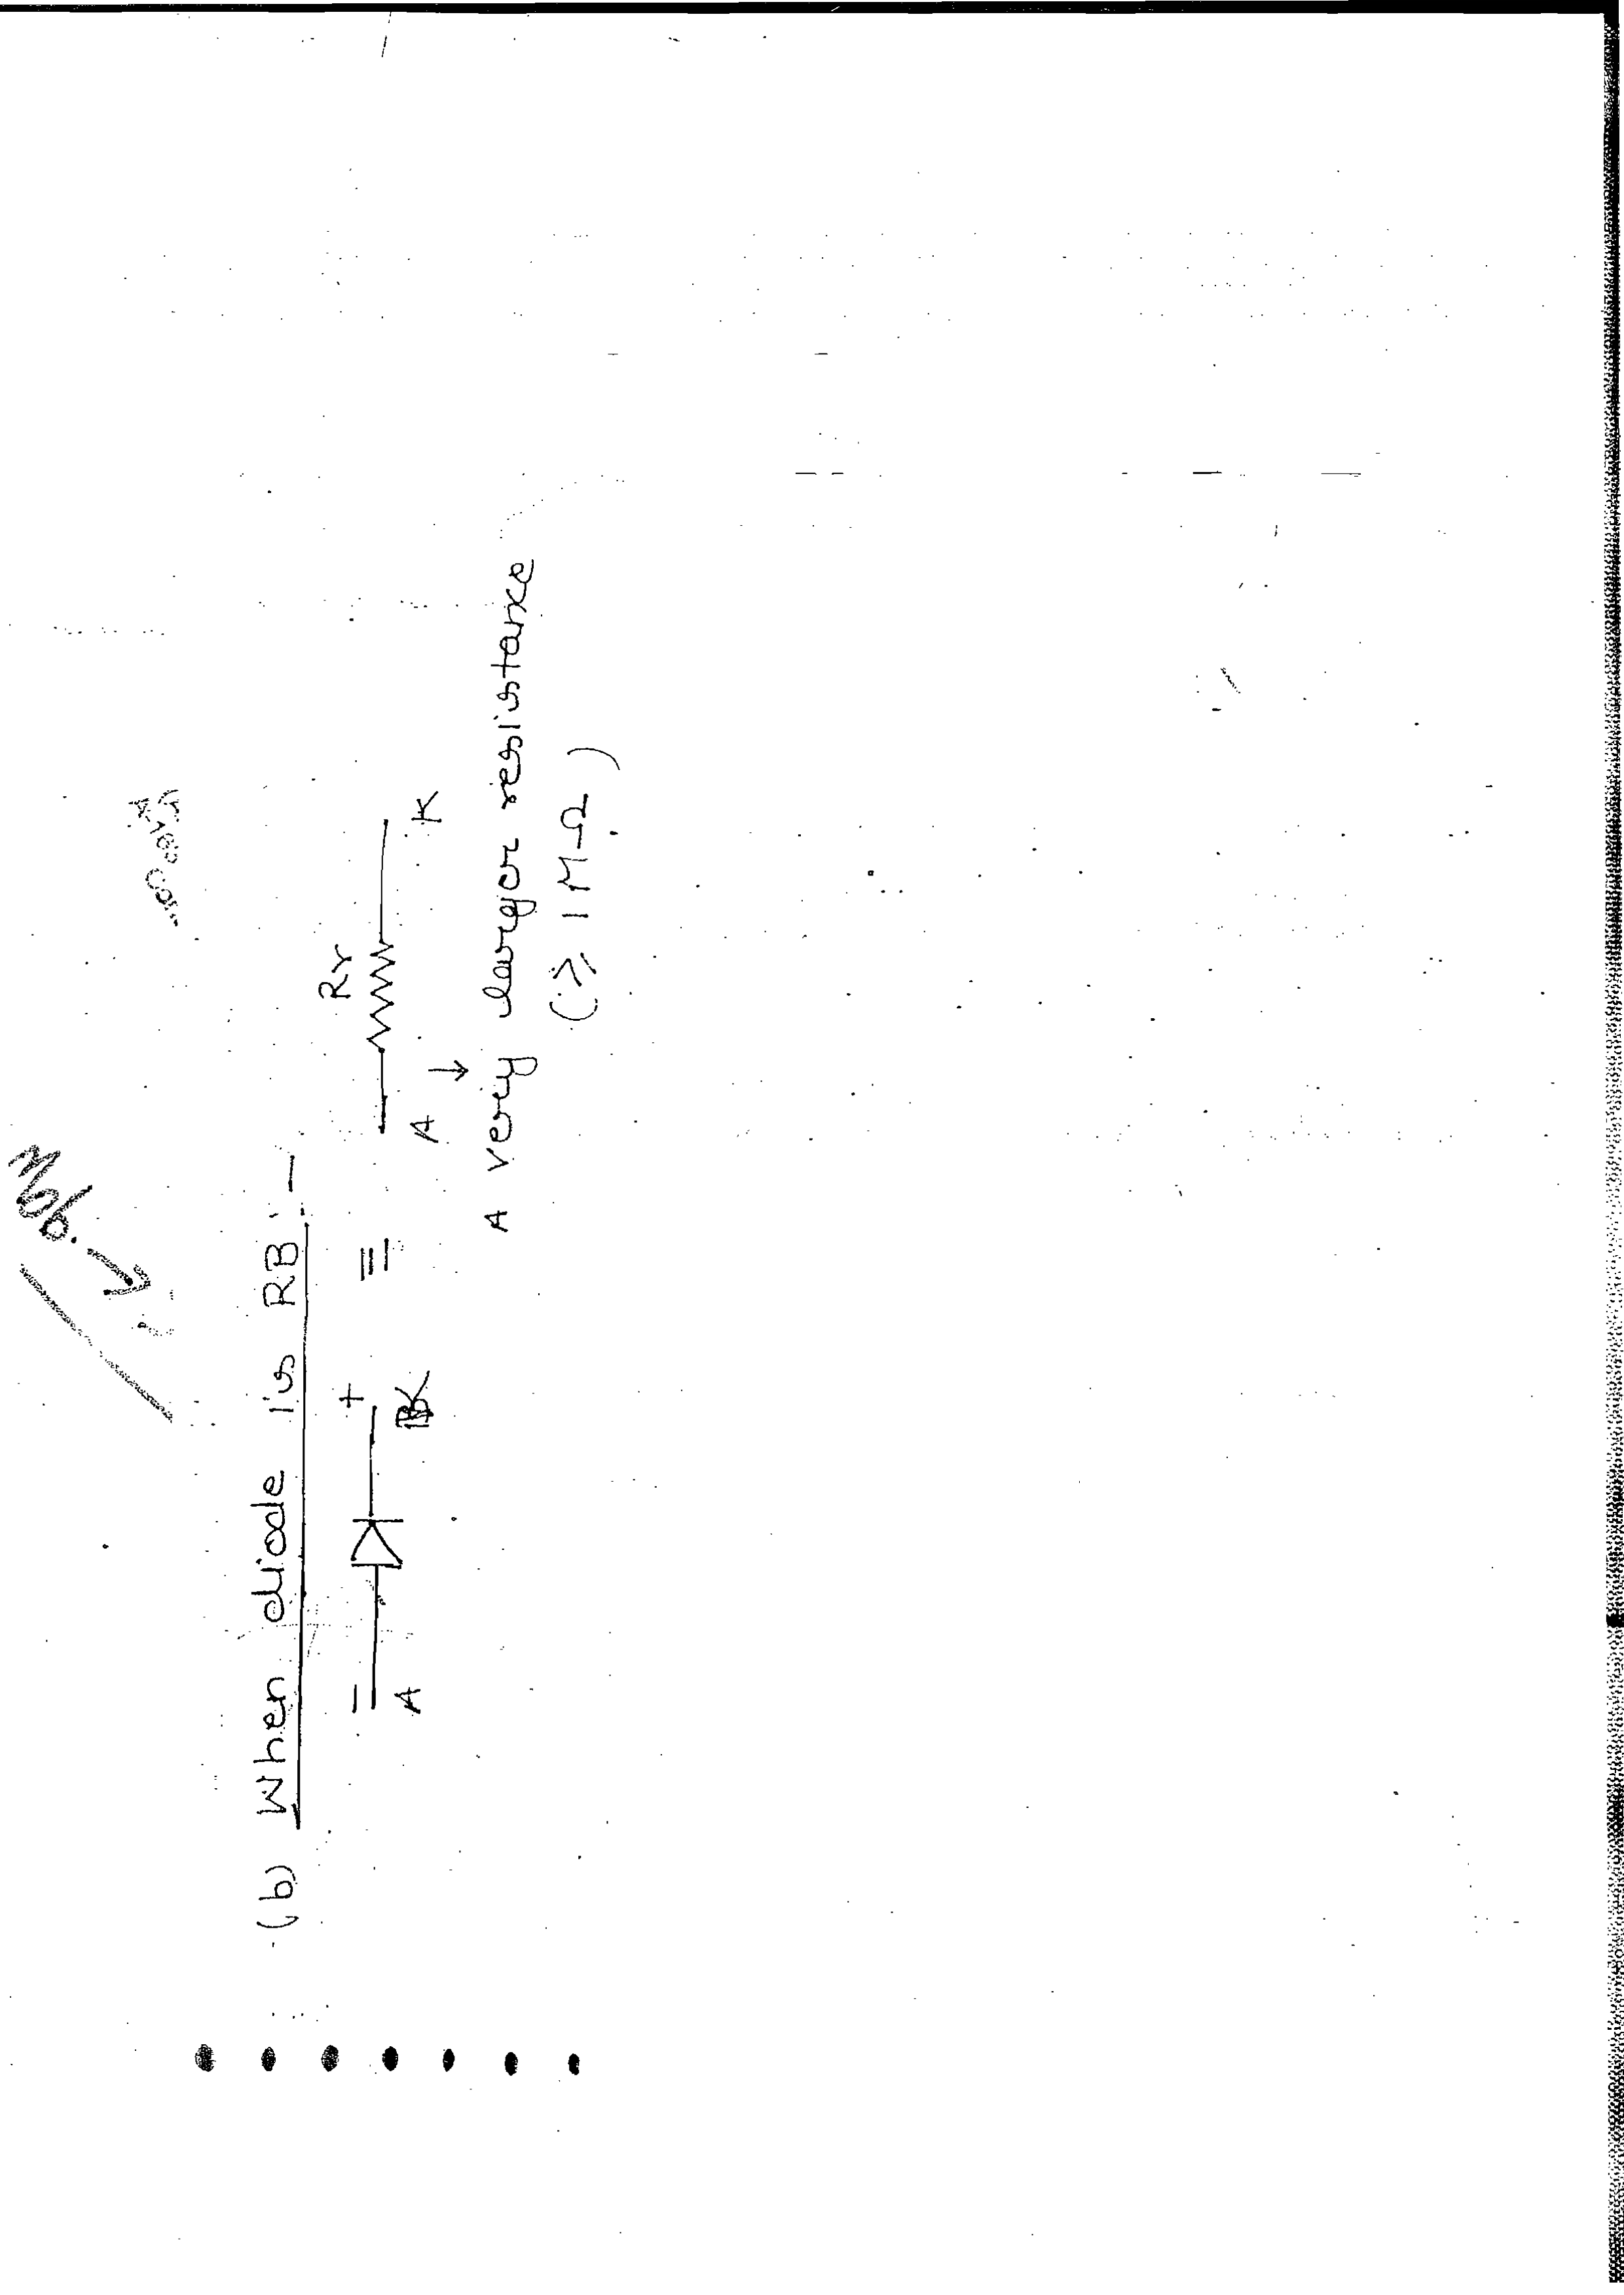 (b) When diode is RB :-
Rr
- + ≡
A K A K
↓
A very larger resistance
(≥ 1 M-Ω)
Mob. →